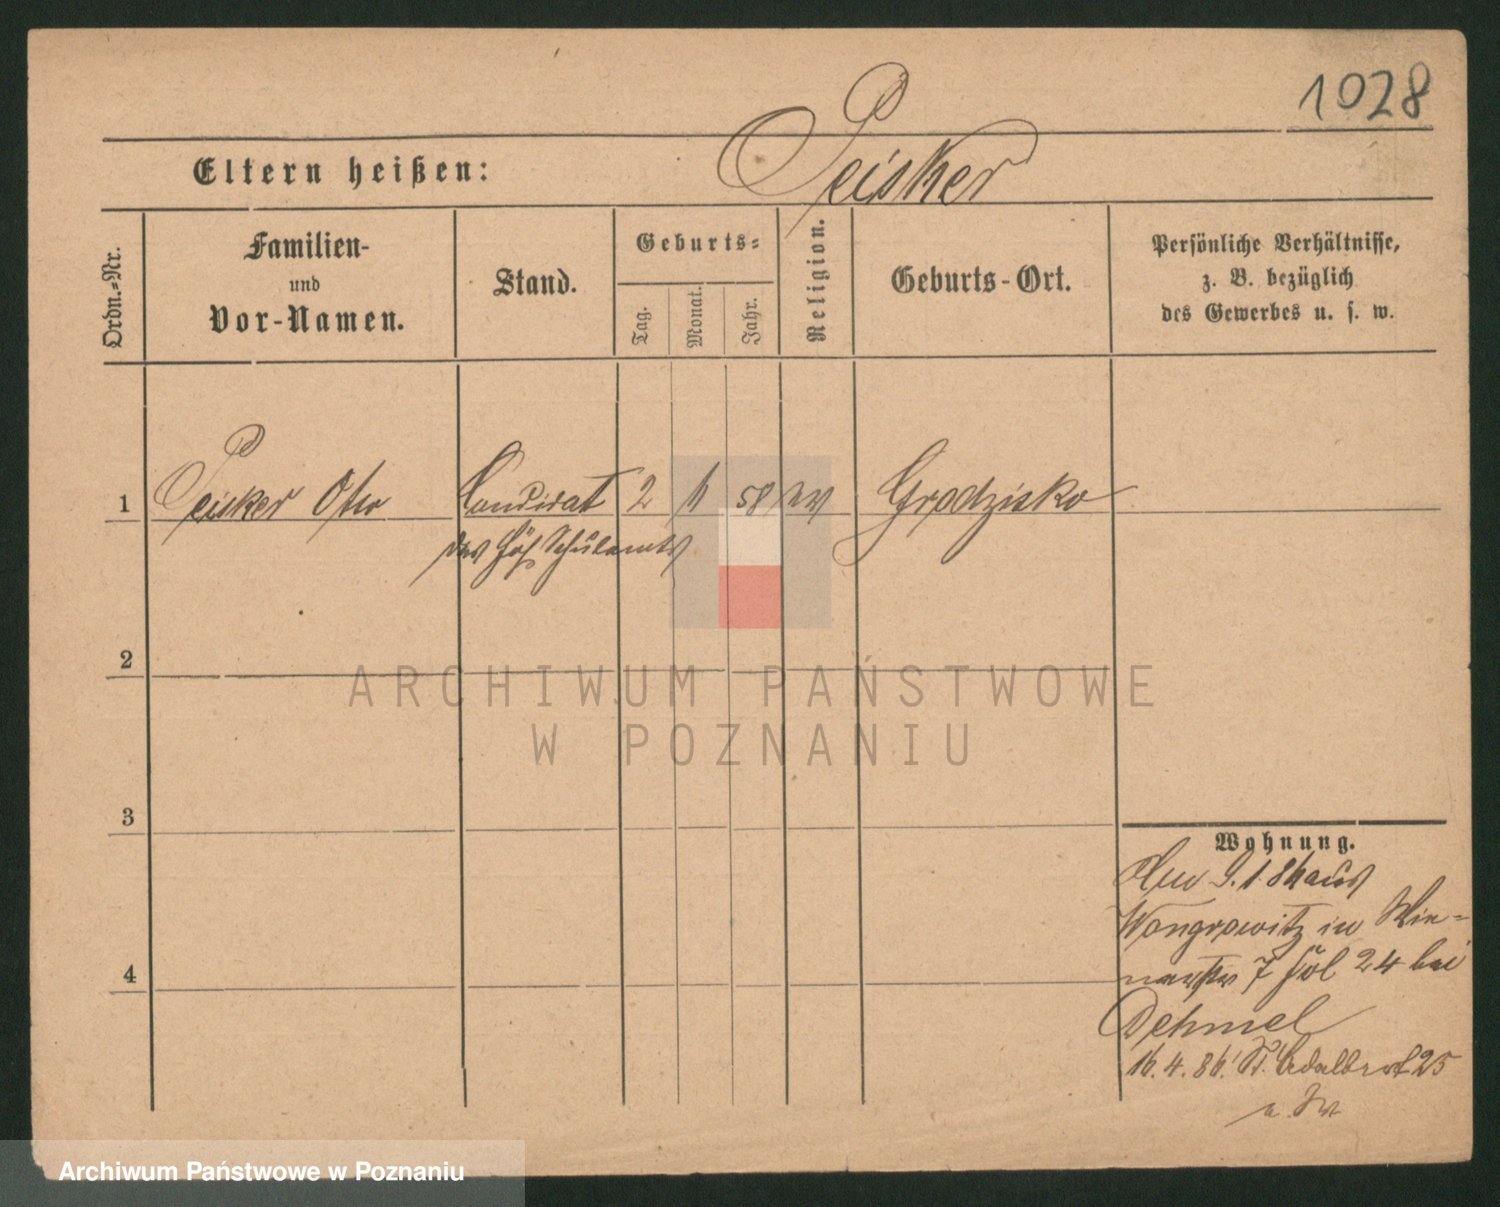 1028
Peisker
Eltern heißen:
Ordn.-Nr.
Familien-
und
Vor-Namen.
Stand.
Geburts-
Tag.
Monat.
Jahr.
Religion.
Geburts-Ort.
Persönliche Verhältnisse,
z. B. bezüglich
des Gewerbes u. s. w.
1 Peisker Otto Candidat 2 6 58 ev Grodzisko
des höh. Schulamts
2
3
4
Wohnung.
9. 1. 86 aus
Wongrowitz in Wie-
7 24 bei
Dehmel
16. 4. 86. St. Adalbert 25
ARCHIWUM PAŃSTWOWE
W POZNANIU
Archiwum Państwowe w Poznaniu